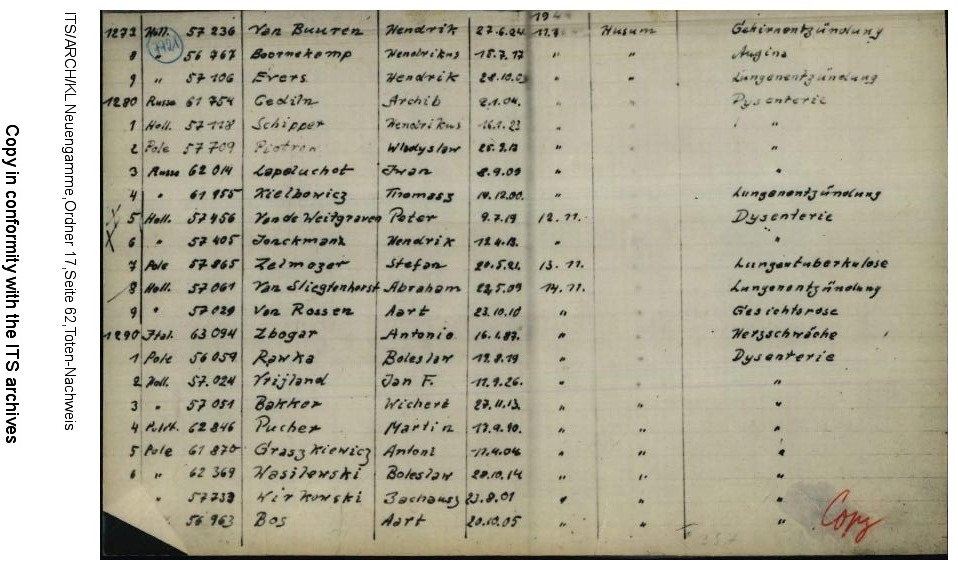 1944
1277 Holl. 57 236 Van Buuren Hendrik 27.6.24 11.11. Husum Gehirnentzündung
7721
8 " 56 767 Boernekamp Hendrikus 15.7.17 " " Angina
9 " 57 106 Evers Hendrik 28.10.03 " " Lungenentzündung
1280 Russe 61 754 Gediln Archib 2.1.04. " " Dysenterie
1 Holl. 57 118 Schipper Hendrikus 16.1.23 " "
2 Pole 57 709 Piotron Wladyslaw 25.9.13 " "
3 Russe 62 014 Lapoluchot Iwan 8.9.09 " "
4 " 61 955 Kielbowicz Thomasz 14.12.00. " Lungenentzündung
5 Holl. 57 456 Van de Weitgraven Peter 9.7.19 12.11. Dysenterie
6 " 57 405 Jonckmann Hendrik 12.4.13. " "
7 Pole 57 865 Zelmozer Stefan 20.5.21. 13.11. Lungentuberkulose
8 Holl. 57 061 Van Sliegtenhorst Abraham 22.5.09 14.11. Lungenentzündung
9 " 57 029 Van Rossen Aart 23.10.10 " Gesichtsrose
1290 Ital. 63 094 Zbogar Antonio 16.1.87. " Herzschwäche
1 Pole 56 059 Rawka Boleslaw 19.8.19 " Dysenterie
2 Holl. 57.024 Vrijland Jan F. 11.9.26. " "
3 " 57 051 Bakker Wichert 27.11.13. " " "
4 62 846 Pucher Martin 17.9.90. " " "
5 Pole 61 870 Graszkiewicz Antoni 17.4.06 " " "
6 " 62 369 Wasilewski Boleslaw 20.10.14 " " "
" 57733 Wirkowski Zachausz 23.8.01 " " "
56 963 Bos Aart 20.10.05 " " "
Copy
ITS/ARCH/KL Neuengamme,Ordner 17,Seite 62,Toten-Nachweis
Copy in conformity with the ITS archives